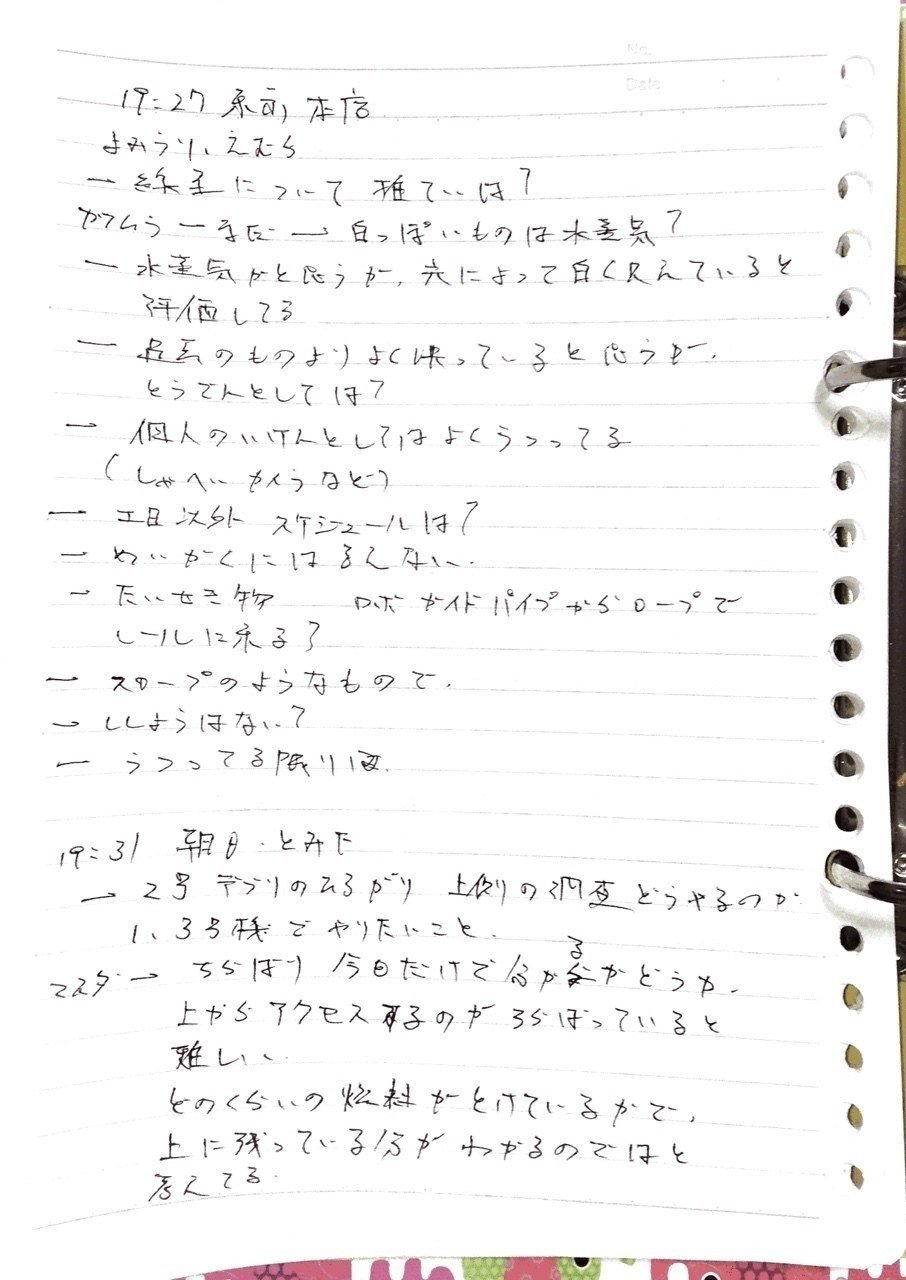 No.
Date
19:27 東京、本店
よみうり、えむら
ー 線量について 推ていは?
カワムラ ー まだ ー 白っぽいものは水蒸気?
ー 水蒸気かと思うが、光によって白く見えていると
評価してる
ー 過去のものよりよく映っていると思うが、
とうでんとしては?
ー 個人のいけんとしてはよくうつってる
(しゃへい かいうなど)
ー 工日以外 スケジュールは?
ー めいかくにはきんない、
ー たいせき物 ロボ ガイドパイプからロープで
レールに乗る?
ー スロープのようなもので、
ー ししょうはない?
ー うつってる限りは、
19:31 朝日・とみた
ー 2号 デブリのひろがり 上側の調査どうやるのか
1、3号機で やりたいこと、
マスダ ー ちらばり 今日だけで分かるかどうか、
上からアクセスするのが ちらばっていると
難しい、
どのくらいの燃料がとけているかで、
上に残っている分が わかるのではと
考えてる